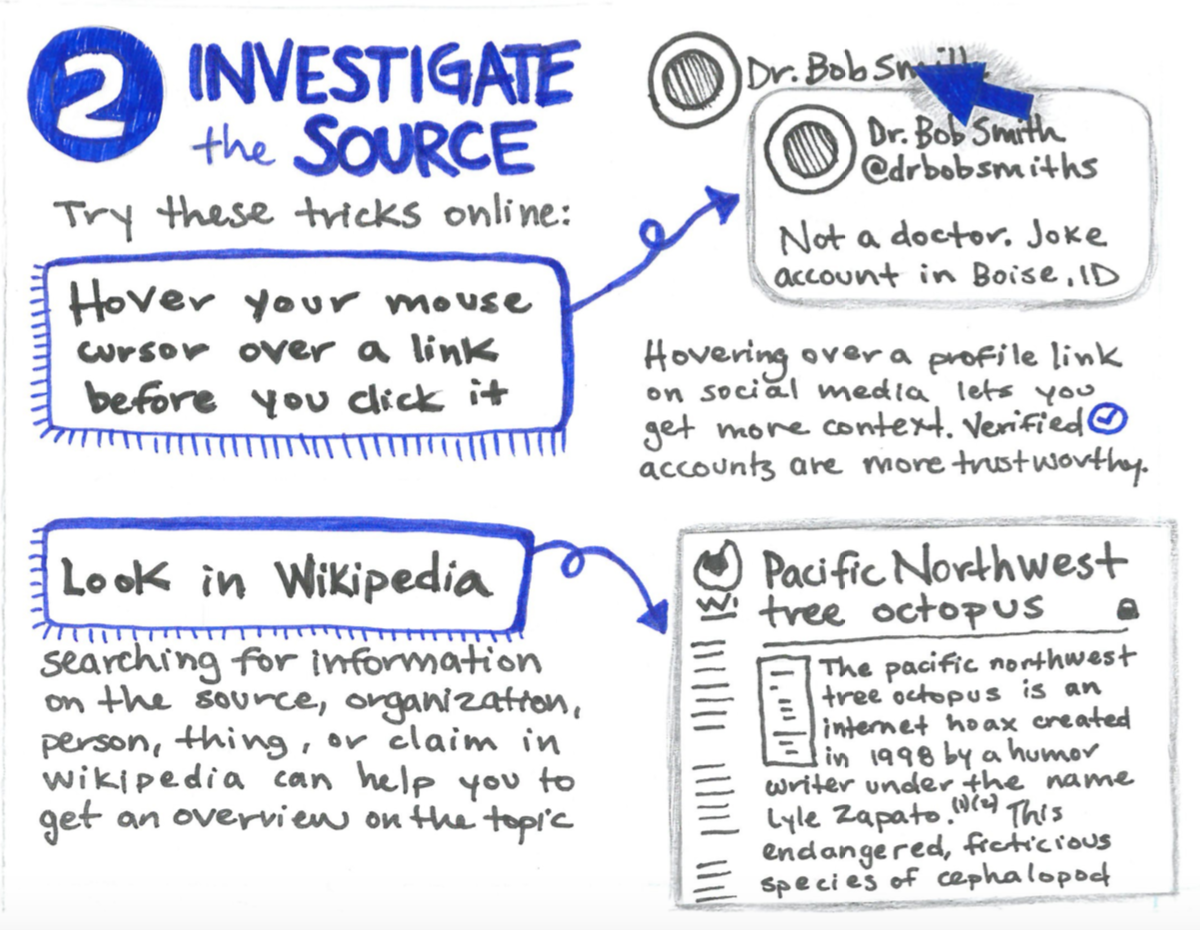 2 INVESTIGATE
the SOURCE
Try these tricks online:
Hover your mouse
cursor over a link
before you click it
Dr. Bob Smith
Dr. Bob Smith
@drbobsmiths
Not a doctor. Joke
account in Boise, ID
Hovering over a profile link
on social media lets you
get more context. Verified
accounts are more trustworthy.
Look in Wikipedia
searching for information
on the source, organization,
person, thing, or claim in
wikipedia can help you to
get an overview on the topic
W!
Pacific Northwest
tree octopus
The pacific northwest
tree octopus is an
internet hoax created
in 1998 by a humor
writer under the name
Lyle Zapato.(1)(2) This
endangered, ficticious
species of cephalopod